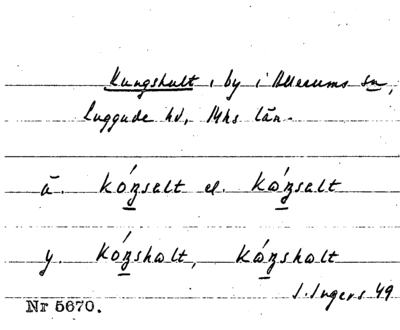 Kungshult, by i Allerums sn,
Luggude hd, Mhs län.
ä. kóŋsalt el. káŋsalt
y. kóŋshalt, káŋshalt
I. Ingers 49
Nr 5670.